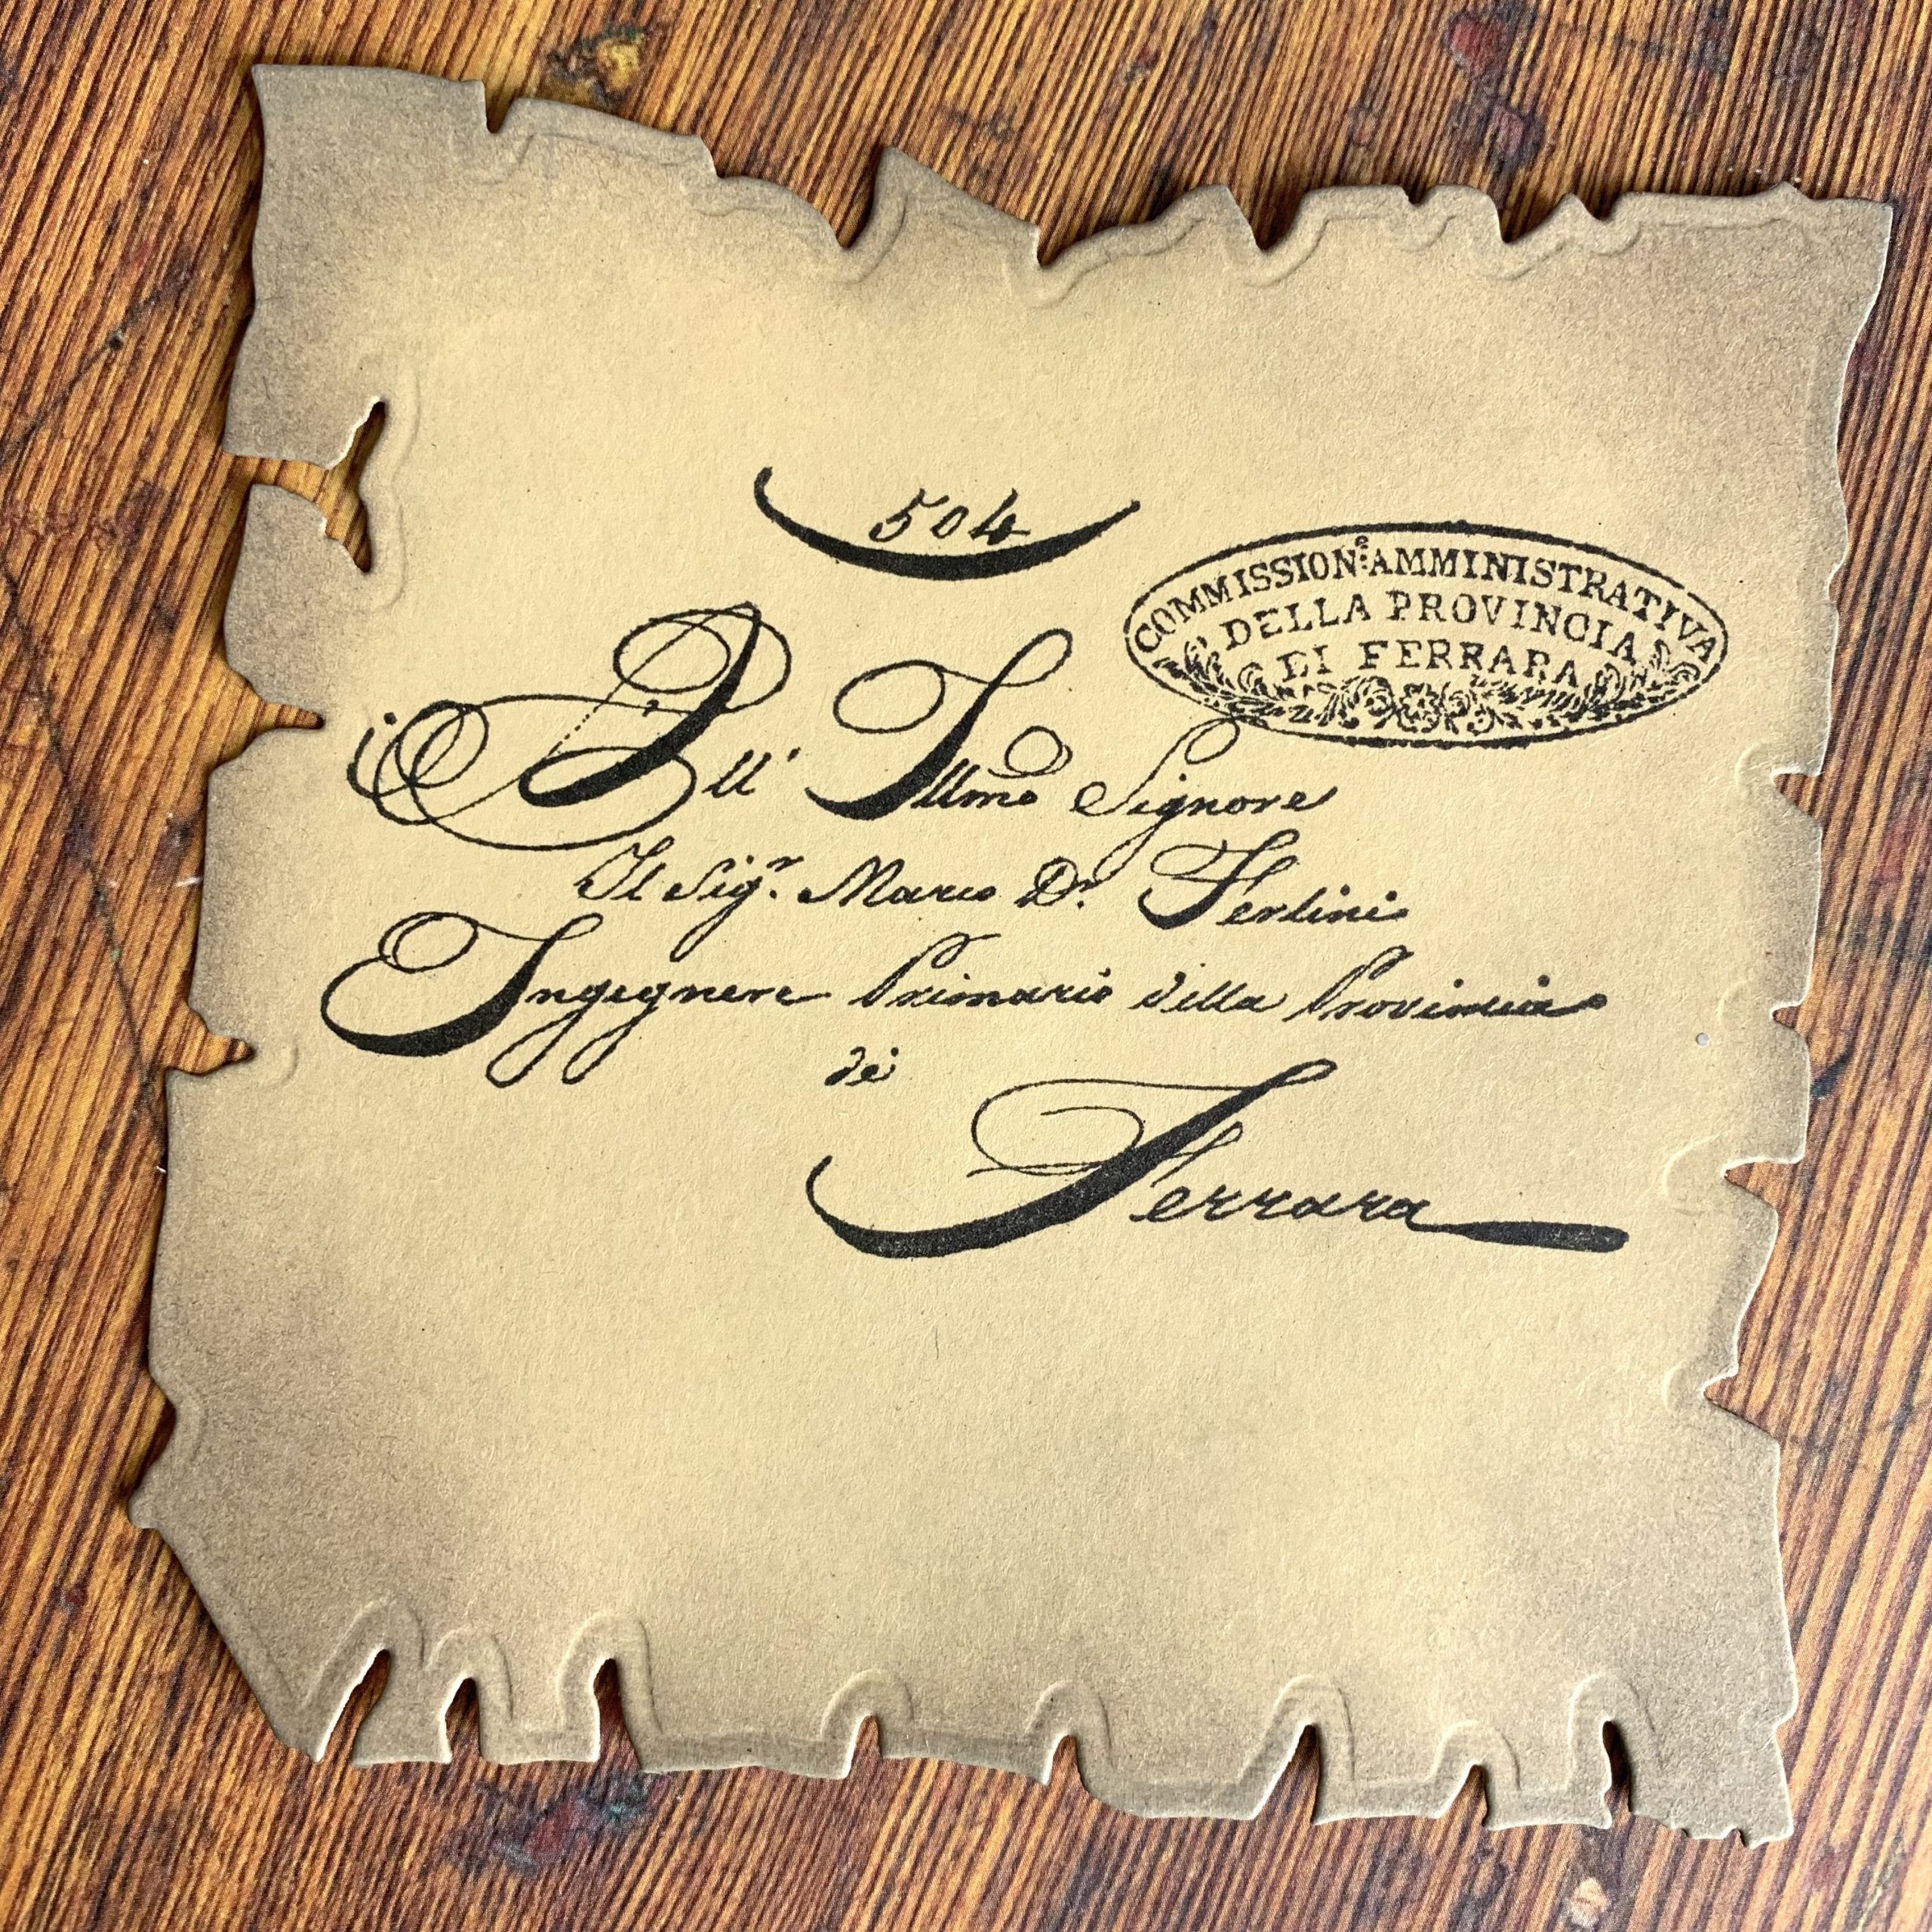 504
COMMISSION.e AMMINISTRATIVA
DELLA PROVINCIA
DI FERRARA
All' Illmo Signore
Il Sigr. Marco Dr. Ferlini
Ingegnere Primario della Provincia
di
Ferrara